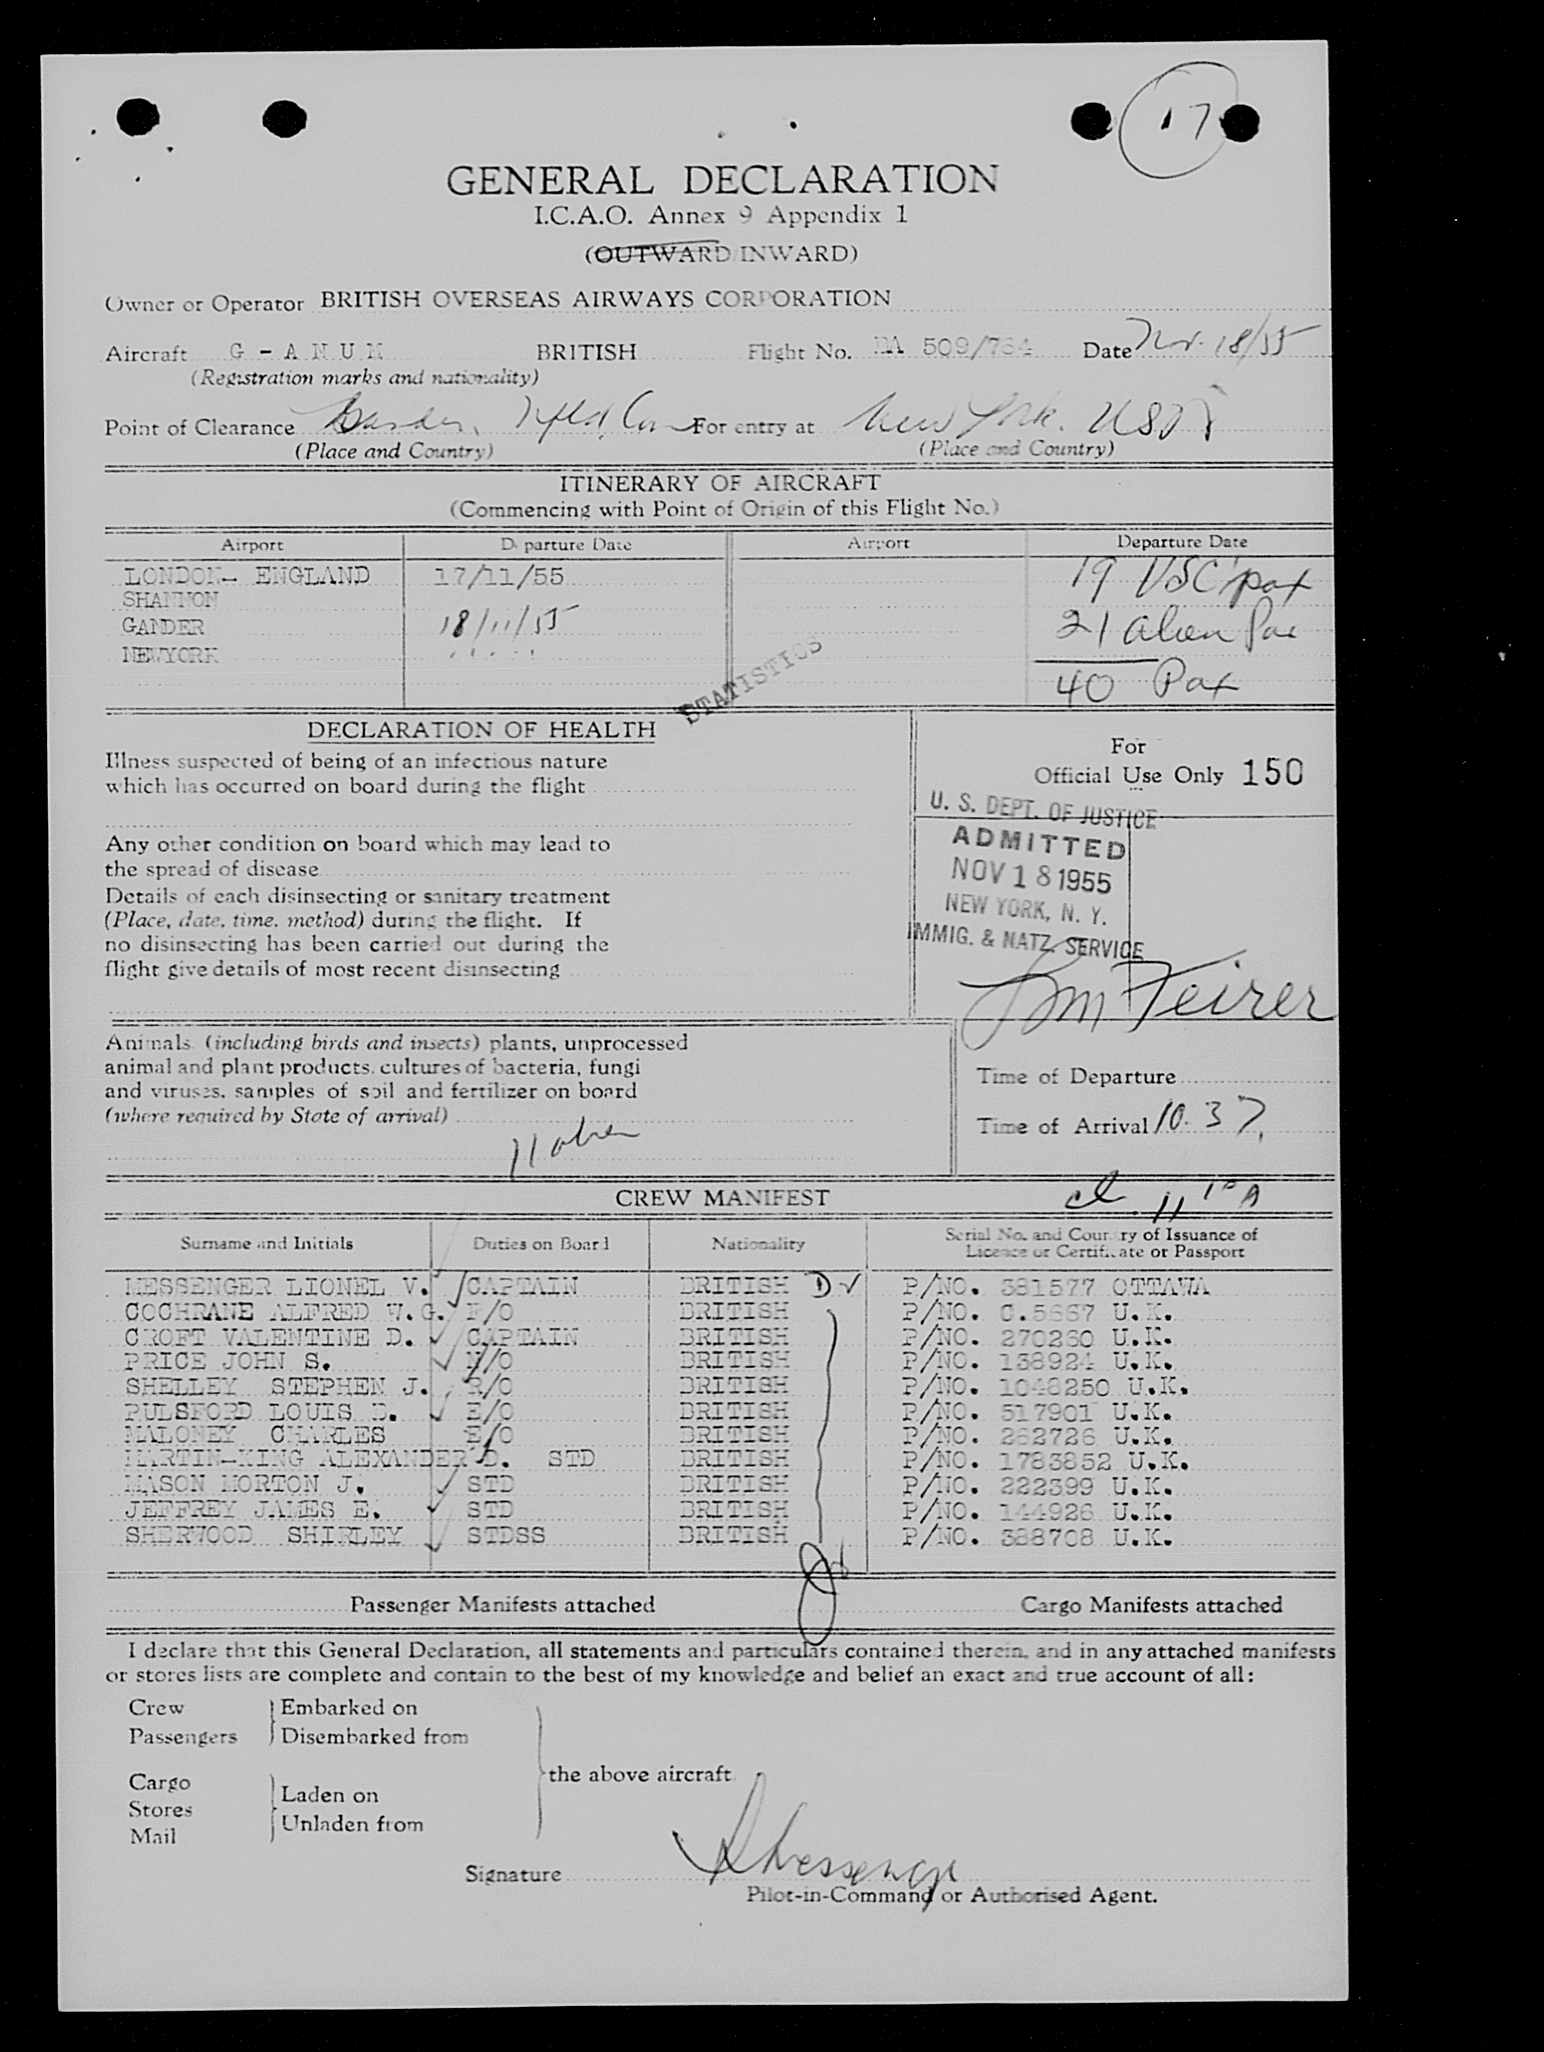 17
GENERAL DECLARATION
I.C.A.O. Annex 9 Appendix 1
(OUTWARD/INWARD)
Owner or Operator BRITISH OVERSEAS AIRWAYS CORPORATION
Aircraft G - A N U M BRITISH Flight No. BA 509/764 Date Nov. 18/55
(Registration marks and nationality)
Point of Clearance Gander, Nfld, Can For entry at New York. USA
(Place and Country) (Place and Country)
ITINERARY OF AIRCRAFT
(Commencing with Point of Origin of this Flight No.)
Airport Departure Date Airport Departure Date
LONDON- ENGLAND 17/11/55 19 USC pax
SHANNON
GANDER 18/11/55 21 alien Pax
NEWYORK
40 Pax
STATISTICS
DECLARATION OF HEALTH
Illness suspected of being of an infectious nature
which has occurred on board during the flight
For
Official Use Only 150
U. S. DEPT. OF JUSTICE
ADMITTED
NOV 18 1955
NEW YORK, N. Y.
IMMIG. & NATZ. SERVICE
Feirer
Any other condition on board which may lead to
the spread of disease
Details of each disinsecting or sanitary treatment
(Place, date, time, method) during the flight. If
no disinsecting has been carried out during the
flight give details of most recent disinsecting
Animals (including birds and insects) plants, unprocessed
animal and plant products, cultures of bacteria, fungi
and viruses, samples of soil and fertilizer on board
(where required by State of arrival)
11 alien
Time of Departure
Time of Arrival 10.37
CREW MANIFEST
Surname and Initials Duties on Board Nationality Serial No. and Country of Issuance of
Licence or Certificate or Passport
MESSENGER LIONEL V. CAPTAIN BRITISH D P/NO. 381577 OTTAWA
COCHRANE ALFRED W.G. F/O BRITISH P/NO. C.5667 U.K.
CROFT VALENTINE D. CAPTAIN BRITISH P/NO. 270260 U.K.
PRICE JOHN S. N/O BRITISH P/NO. 138924 U.K.
SHELLEY STEPHEN J. R/O BRITISH P/NO. 1048250 U.K.
PULSFORD LOUIS D. E/O BRITISH P/NO. 517901 U.K.
MALONEY CHARLES E/O BRITISH P/NO. 262726 U.K.
MARTIN-KING ALEXANDER D. STD BRITISH P/NO. 1783852 U.K.
MASON MORTON J. STD BRITISH P/NO. 222399 U.K.
JEFFREY JAMES E. STD BRITISH P/NO. 144926 U.K.
SHERWOOD SHIRLEY STDSS BRITISH P/NO. 388708 U.K.
Passenger Manifests attached Cargo Manifests attached
I declare that this General Declaration, all statements and particulars contained therein, and in any attached manifests
or stores lists are complete and contain to the best of my knowledge and belief an exact and true account of all:
Crew Embarked on
Passengers Disembarked from
the above aircraft
Cargo
Stores Laden on
Mail Unladen from
Signature Messenger
Pilot-in-Command or Authorised Agent.